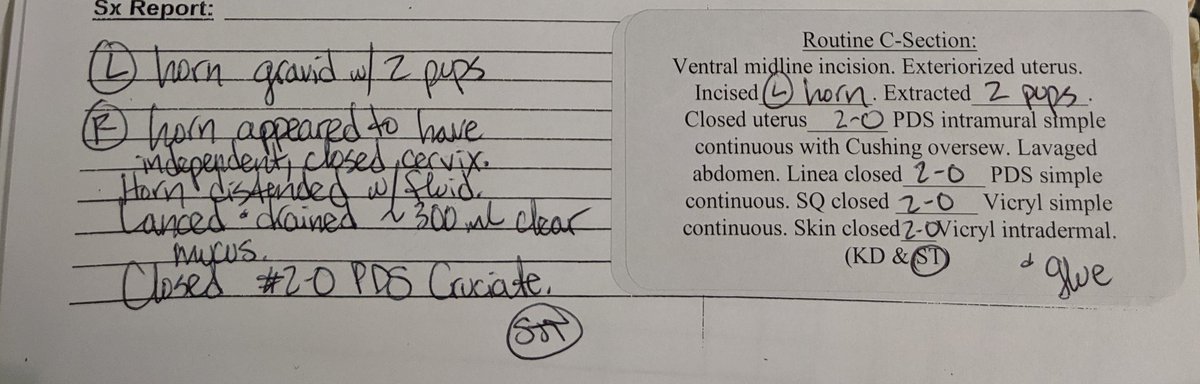 Sx Report:
(L) horn gravid w/ 2 pups
(R) horn appeared to have
independent, closed cervix.
Horn distended w/ fluid.
Lanced & drained ~ 300 ml clear
mucus.
Closed #2-0 PDS Cruciate.
Routine C-Section:
Ventral midline incision. Exteriorized uterus.
Incised (L) horn. Extracted 2 pups.
Closed uterus 2-0 PDS intramural simple
continuous with Cushing oversew. Lavaged
abdomen. Linea closed 2-0 PDS simple
continuous. SQ closed 2-0 Vicryl simple
continuous. Skin closed 2-0 Vicryl intradermal.
(KD & ST)
& glue